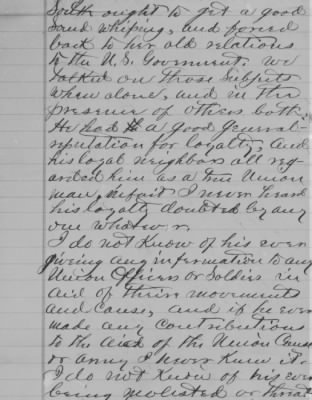 South ought to get a good
sound whiping, and forced
back to her old relations
to the U.S. Goverment. we
talked on those subjects
when alone, and in the
presence of others both.
He had a good general
reputation for loyalty, and
his loyal neighbors all reg-
arded him as a true Union
man, infact I never heard
his loyalty doubted by any
one whatever.
I do not know of his ever
giving any information to any
Union Officers or Soldiers in
aid of their movements
and cause, and if he ever
made any contributions
to the aid of the Union Cause
or army I never knew it.
I do not know of his ever
being molested or threat